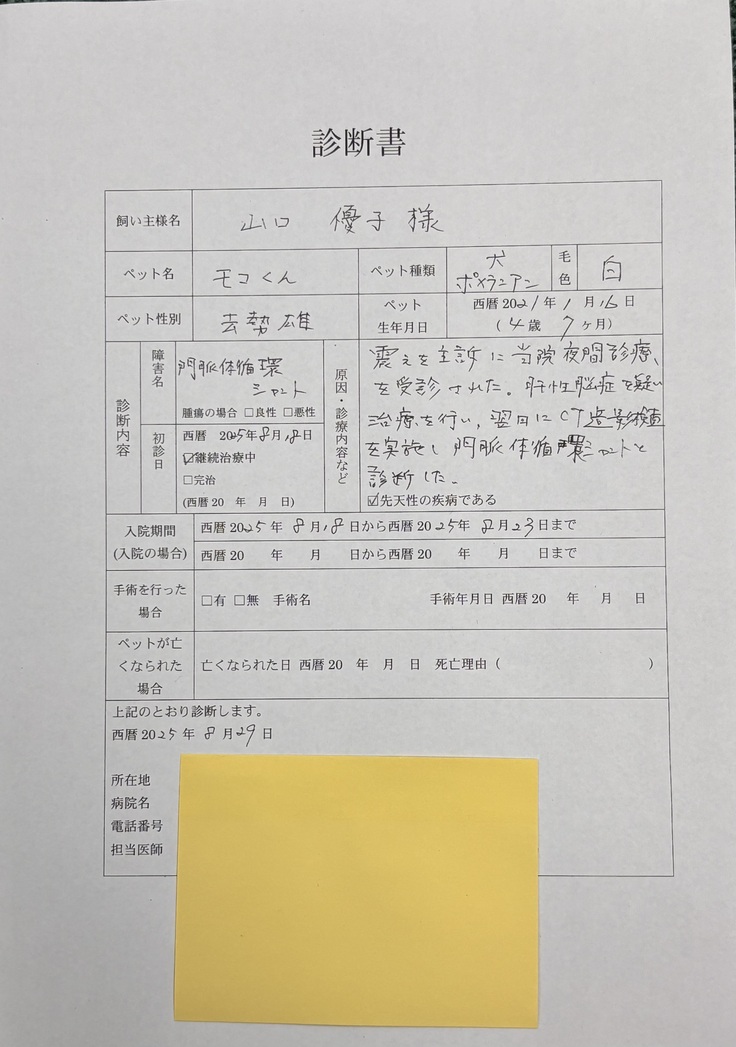 診断書
飼い主様名 山口 優子 様
ペット名 モコくん ペット種類 犬 ポメラニアン 毛色 白
ペット性別 去勢雄 ペット生年月日 西暦 2021年 1月16日
(4歳 7ヶ月)
診断内容
障害名 門脈体循環
シャント
腫瘍の場合 □良性 □悪性
初診日 西暦 2025年8月18日
☑継続治療中
□完治
(西暦20 年 月 日)
原因・診療内容など
震えを主訴に当院夜間診療、
を受診された。肝性脳症を疑い
治療を行い、翌日にCT造影検査
を実施し門脈体循環シャントと
診断した。
☑先天性の疾病である
入院期間 西暦 2025年 8月18日から西暦 2025年 8月23日まで
(入院の場合) 西暦 20 年 月 日から西暦 20 年 月 日まで
手術を行った場合 □有 □無 手術名 手術年月日 西暦 20 年 月 日
ペットが亡くなられた場合 亡くなられた日 西暦 20 年 月 日 死亡理由 ( )
上記のとおり診断します。
西暦 2025年 8月29日
所在地
病院名
電話番号
担当医師